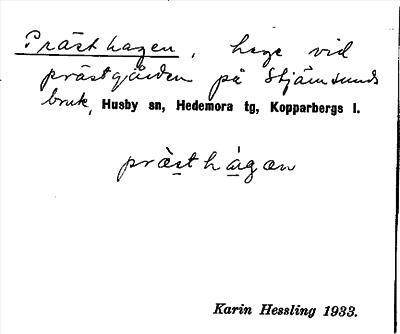 Prästhagen, hage vid
prästgården på Stjärnsunds
bruk, Husby sn, Hedemora tg, Kopparbergs l.
præsthàgæn
Karin Hessling 1933.